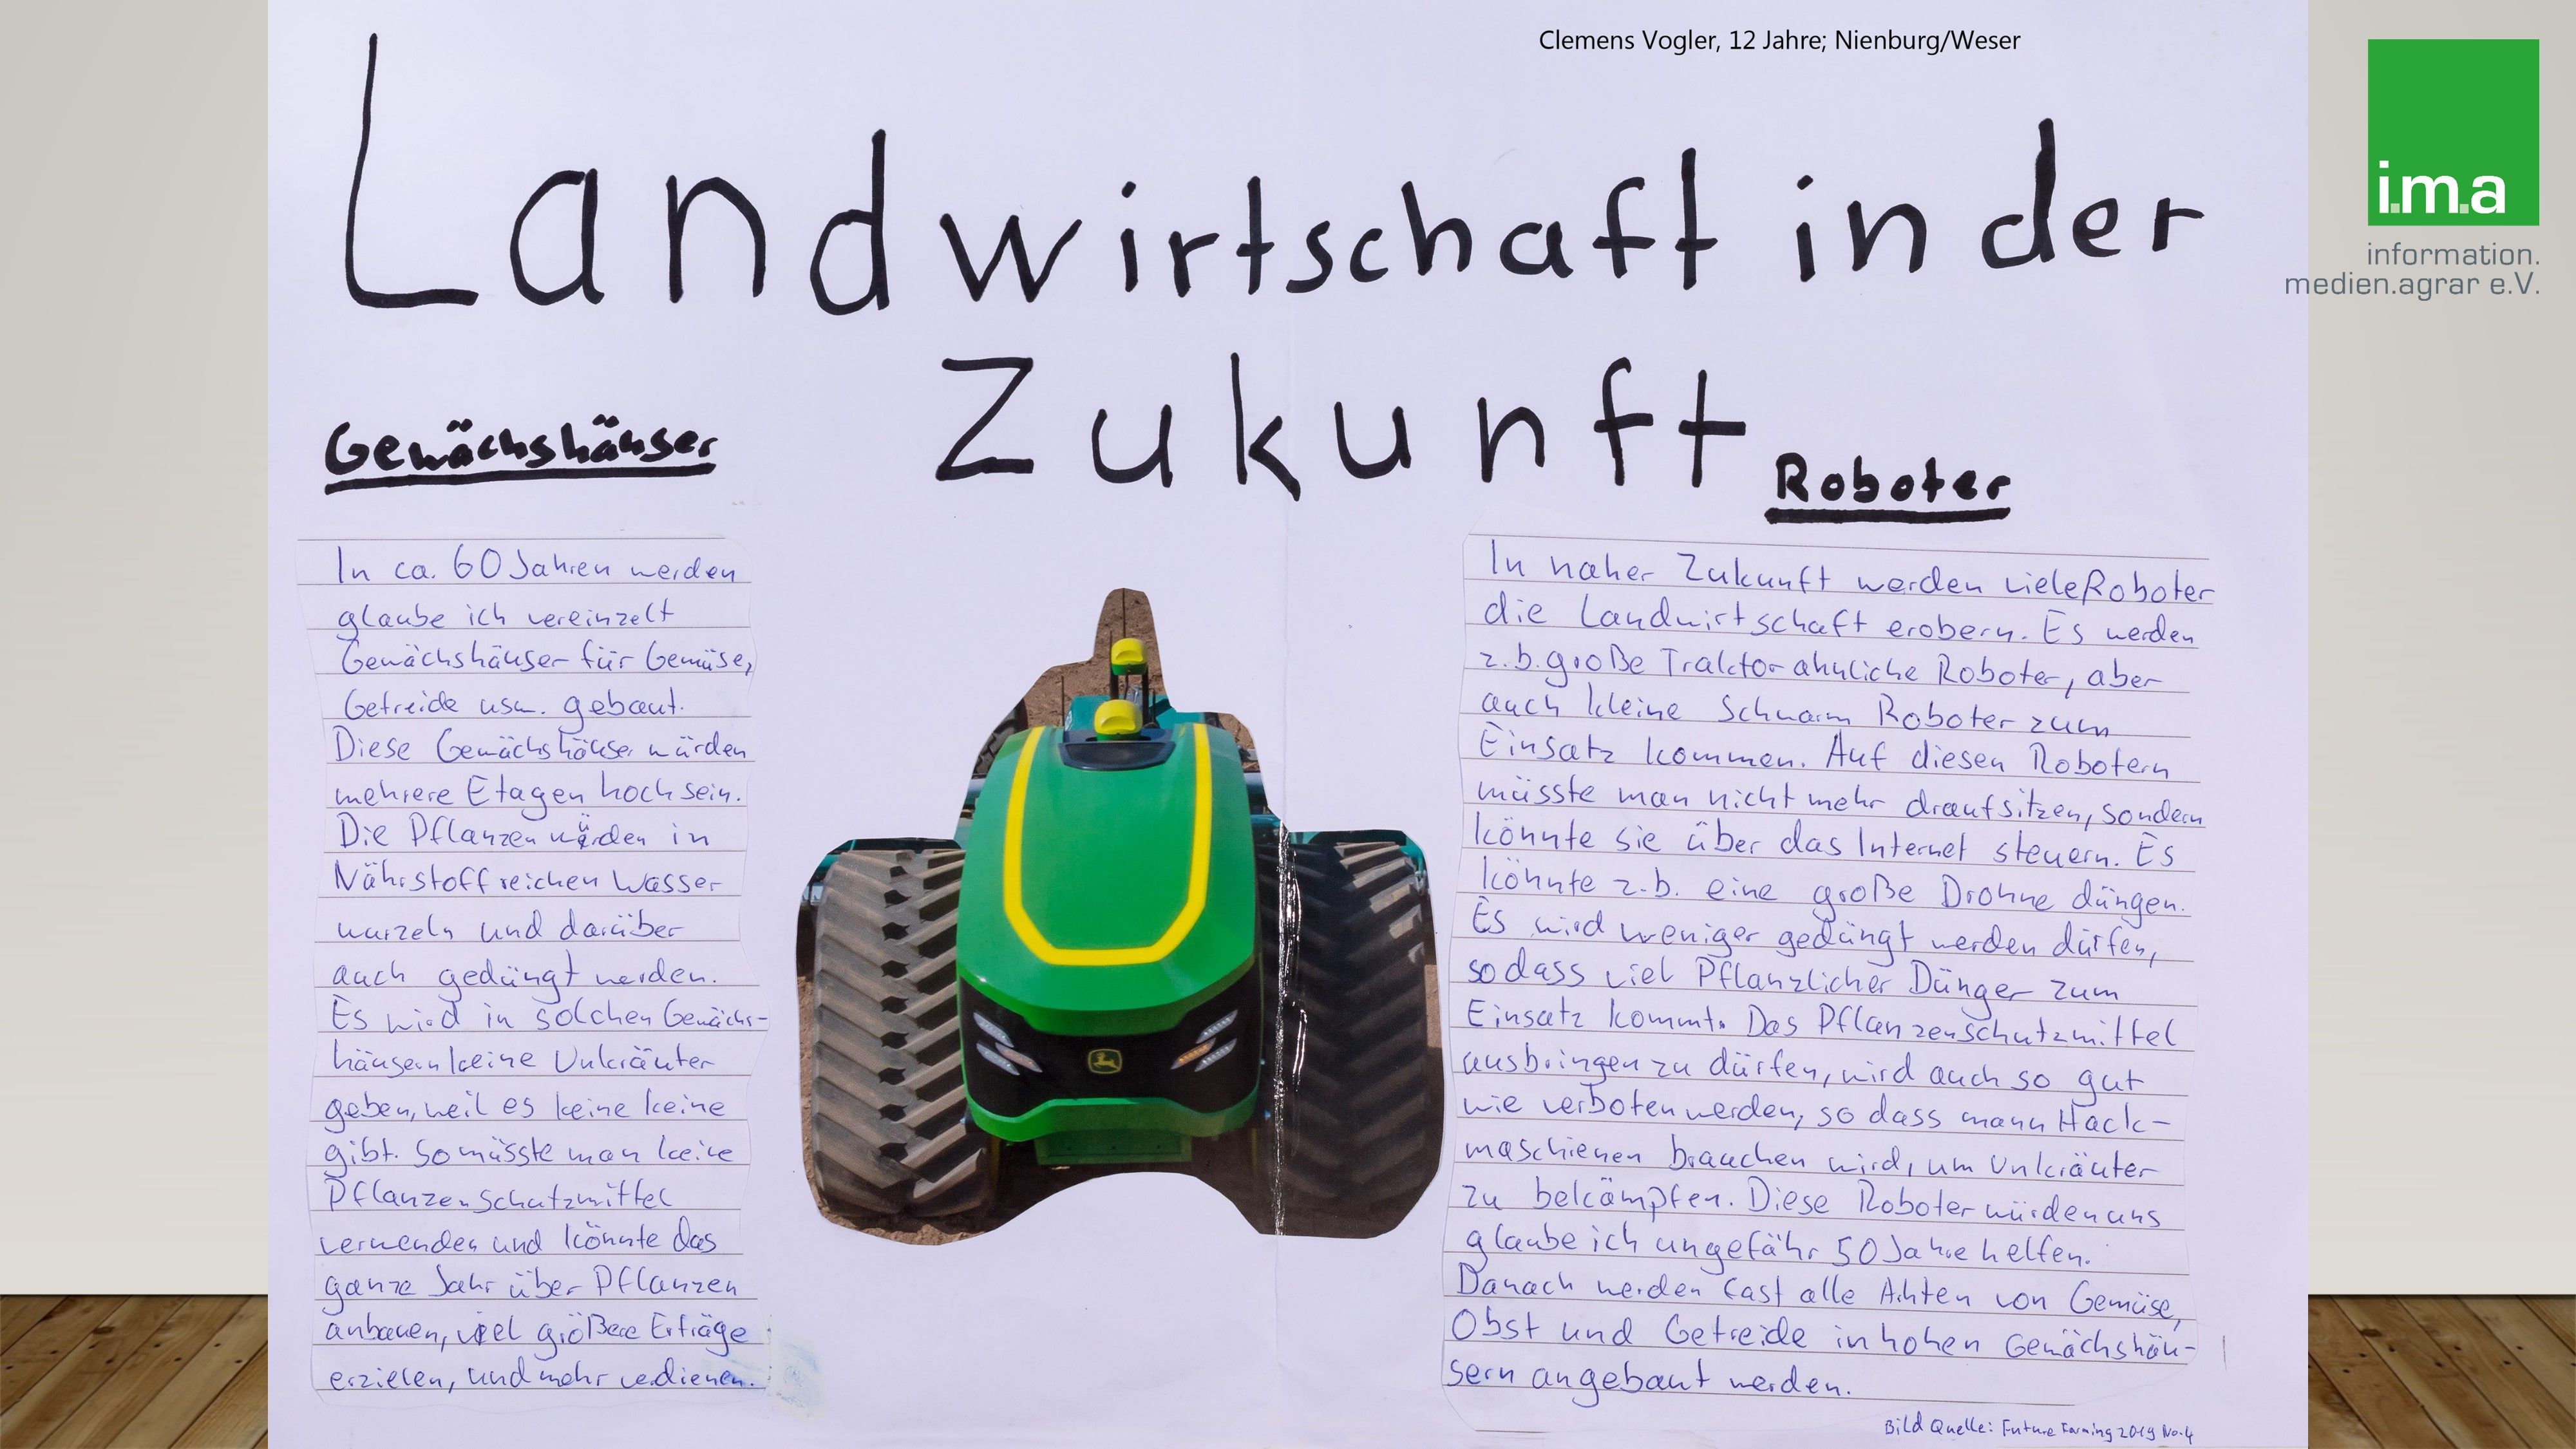 Clemens Vogler, 12 Jahre; Nienburg/Weser
i.m.a
information.
medien.agrar e.V.
Landwirtschaft in der
Zukunft
Gewächshäuser
In ca. 60 Jahren werden
glaube ich vereinzelt
Gewächshäuser für Gemüse,
Getreide usw. gebaut.
Diese Gewächshäuser würden
mehrere Etagen hoch sein.
Die Pflanzen würden in
Nährstoffreichen Wasser
wurzeln und darüber
auch gedüngt werden.
Es wird in solchen Gewächs-
häusern keine Unkräuter
geben, weil es keine keine
gibt. So müsste man keine
Pflanzenschutzmittel
verwenden und könnte das
ganze Jahr über Pflanzen
anbauen, viel größere Erträge
erzielen, und mehr verdienen.
Roboter
In naher Zukunft werden viele Roboter
die Landwirtschaft erobern. Es werden
z.b. große Traktor ähnliche Roboter, aber
auch kleine Schwarm Roboter zum
Einsatz kommen. Auf diesen Robotern
müsste man nicht mehr draufsitzen, sondern
könnte sie über das Internet steuern. Es
könnte z.b. eine große Drohne düngen.
Es wird weniger gedüngt werden dürfen,
sodass viel Pflanzlicher Dünger zum
Einsatz kommt. Das Pflanzenschutzmittel
ausbringen zu dürfen, wird auch so gut
wie verboten werden, so dass mann Hack-
maschienen brauchen wird, um Unkräuter
zu bekämpfen. Diese Roboter würden uns
glaube ich ungefähr 50 Jahre helfen.
Danach werden fast alle Ahten von Gemüse,
Obst und Getreide in hohen Gewächshäu-
sern angebaut werden.
Bild Quelle: Future Farming 2019 No.4